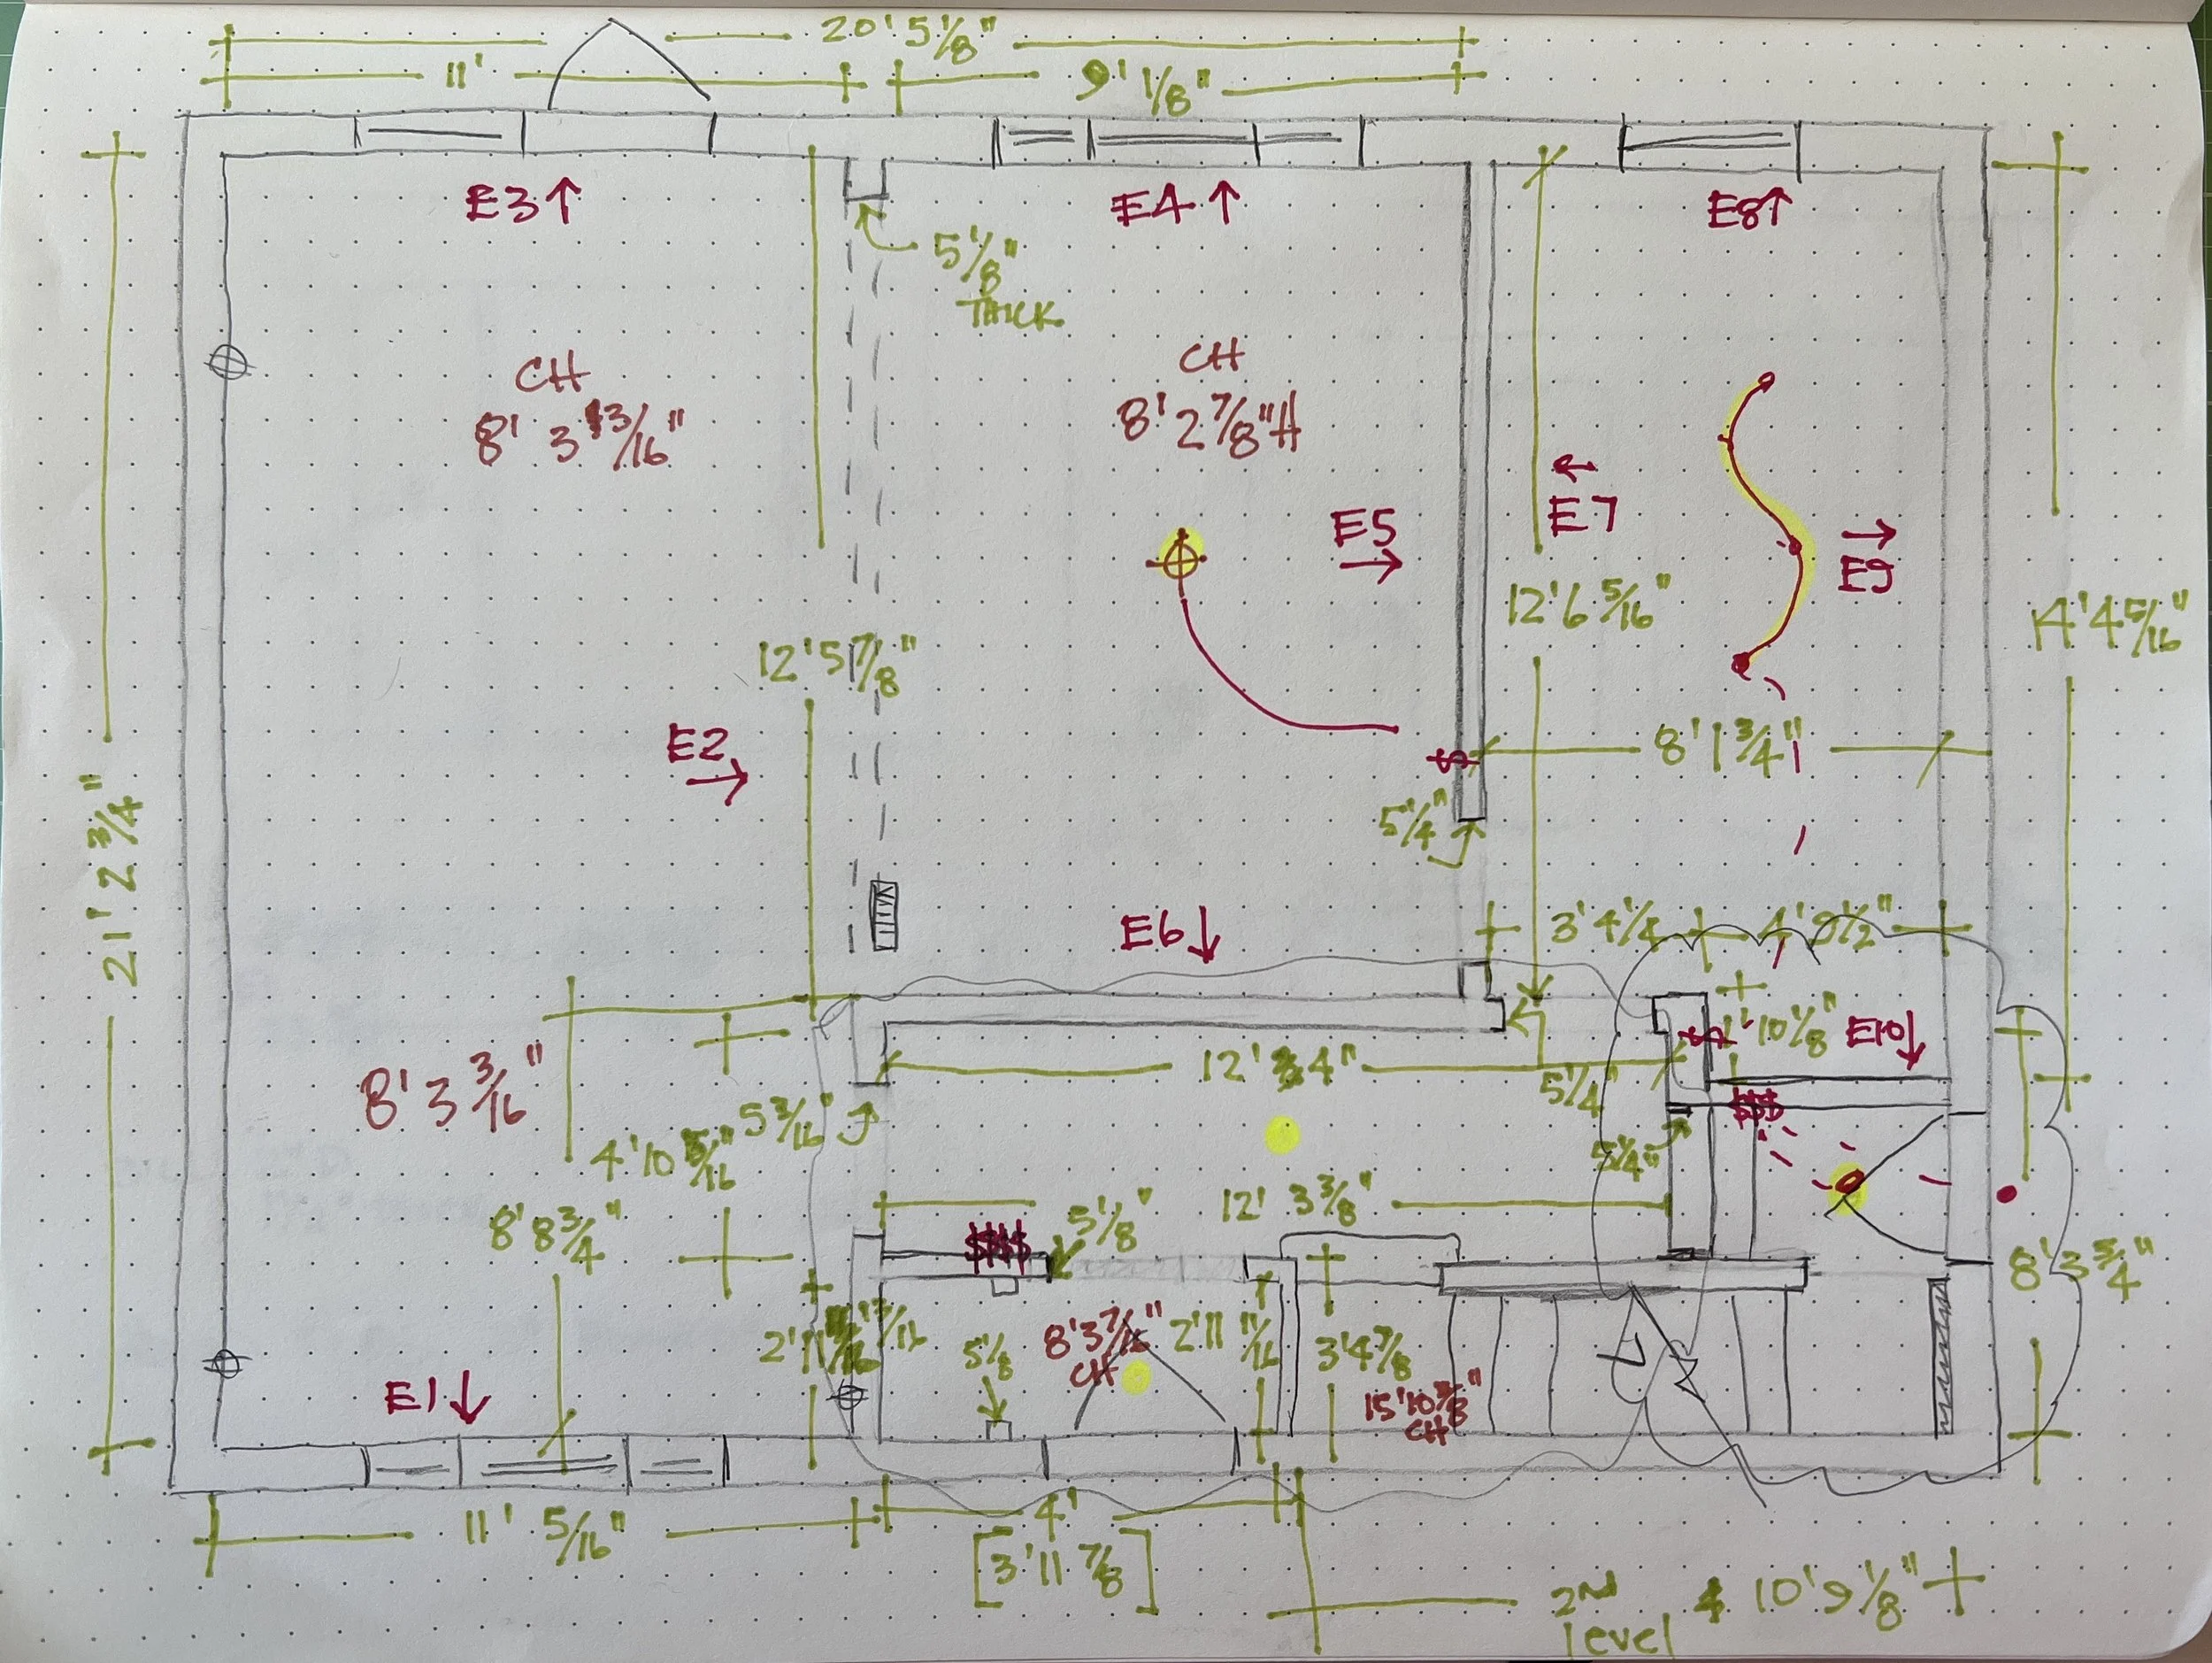 20' 5 1/8"
11'
9' 1/8"
E3↑
E4↑
E8↑
5 1/8"
THICK
CH
8' 3 13/16"
CH
8' 2 7/8"H
E5
→
←
E7
→
E9
12' 6 5/16"
14' 4 5/16"
12' 5 7/8"
E2
→
$
8' 1 3/4"
5 1/4"
21' 2 3/4"
E6↓
3' 4 1/4
1' 10 1/8"
E10↓
$
8' 3 3/16"
12' 3/4"
5 1/4"
5 3/16"
$$$
4' 10 5/16"
5 1/4"
8' 8 3/4"
12' 3 3/8"
$$$$
5 1/8"
8' 3 3/4"
2' 11
5 1/8
8' 3 7/16"
CH
2' 11 11/16
3' 4 7/8
E1↓
15' 10 3/8"
CH
11' 5/16"
4'
[3' 11 7/8]
2ND
level
10' 9 1/8"